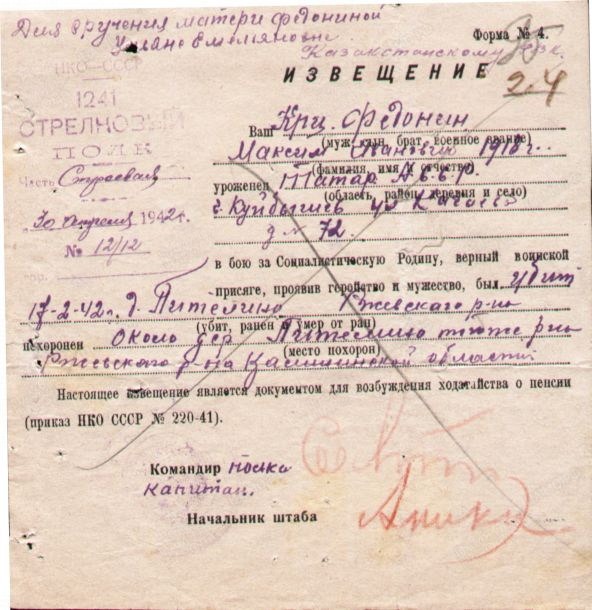 Для вручения матери Федониной
Ульяне Емельяновне
Форма № 4.
Казахстанскому рвк.
25
24
НКО—СССР
1241
СТРЕЛКОВЫЙ
ПОЛК
Часть Строевая
30 апреля 1942 г.
№ 12/12
ИЗВЕЩЕНИЕ
Ваш Кр-ц. Федонин
(муж, сын, брат, военное звание)
Максим Иванович 1918 г.
(фамилия, имя и отчество)
уроженец Татар А.С.С.Р.
(область, район, деревня и село)
г. Куйбышев ул.
д № 72.
в бою за Социалистическую Родину, верный воинской
присяге, проявив геройство и мужество, был убит
17-2-42 г. д. Пителино Ржевского р-на
(убит, ранен и умер от ран)
похоронен около дер Пителино того же р-на
(место похорон)
Ржевского р-на Калининской области
Настоящее извещение является документом для возбуждения ходатайства о пенсии
(приказ НКО СССР № 220-41).
Командир полка
капитан.
Начальник штаба